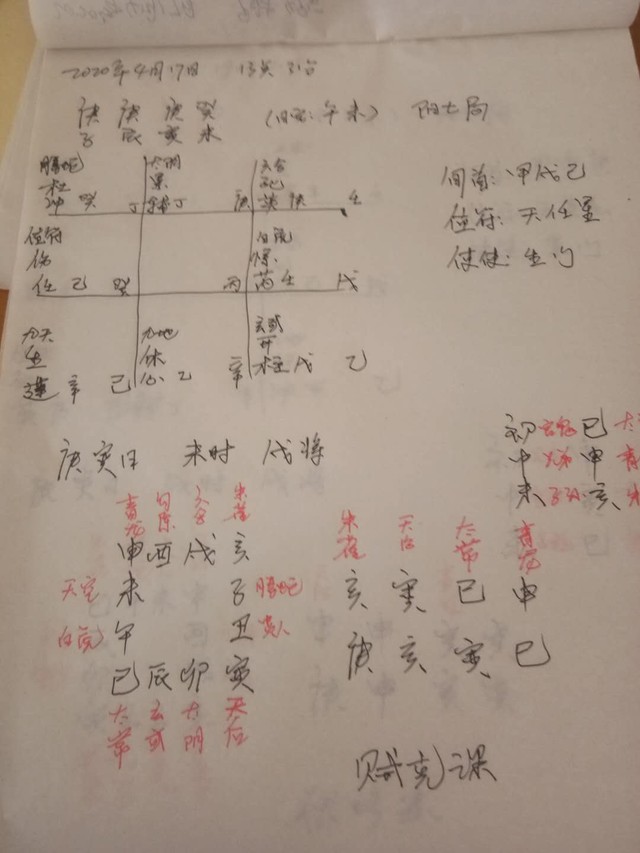 2020年4月17日 13点31分
庚 庚 庚 癸
子 辰 寅 未 (旬空:午未) 阳七局
腾蛇 太阴 六合
杜 景 死
冲 癸 丁 辅 丁 庚 英 庚 壬
值符 白虎
伤 惊
任 己 癸 丙 芮 壬 戊
九天 九地 玄武
生 休 开
蓬 辛 己 心 乙 辛 柱 戊 乙
旬首:甲戌己
值符:天任星
值使:生门
庚寅日 未时 戌将
初 巳
中 申
末 亥
青龙 勾陈 六合 朱雀
申 酉 戌 亥
天空 未 子 腾蛇
白虎 午 丑 贵人
巳 辰 卯 寅
太常 玄武 太阴 天后
朱雀 天后 太常 青龙
亥 寅 巳 申
庚 亥 寅 巳
贼克课